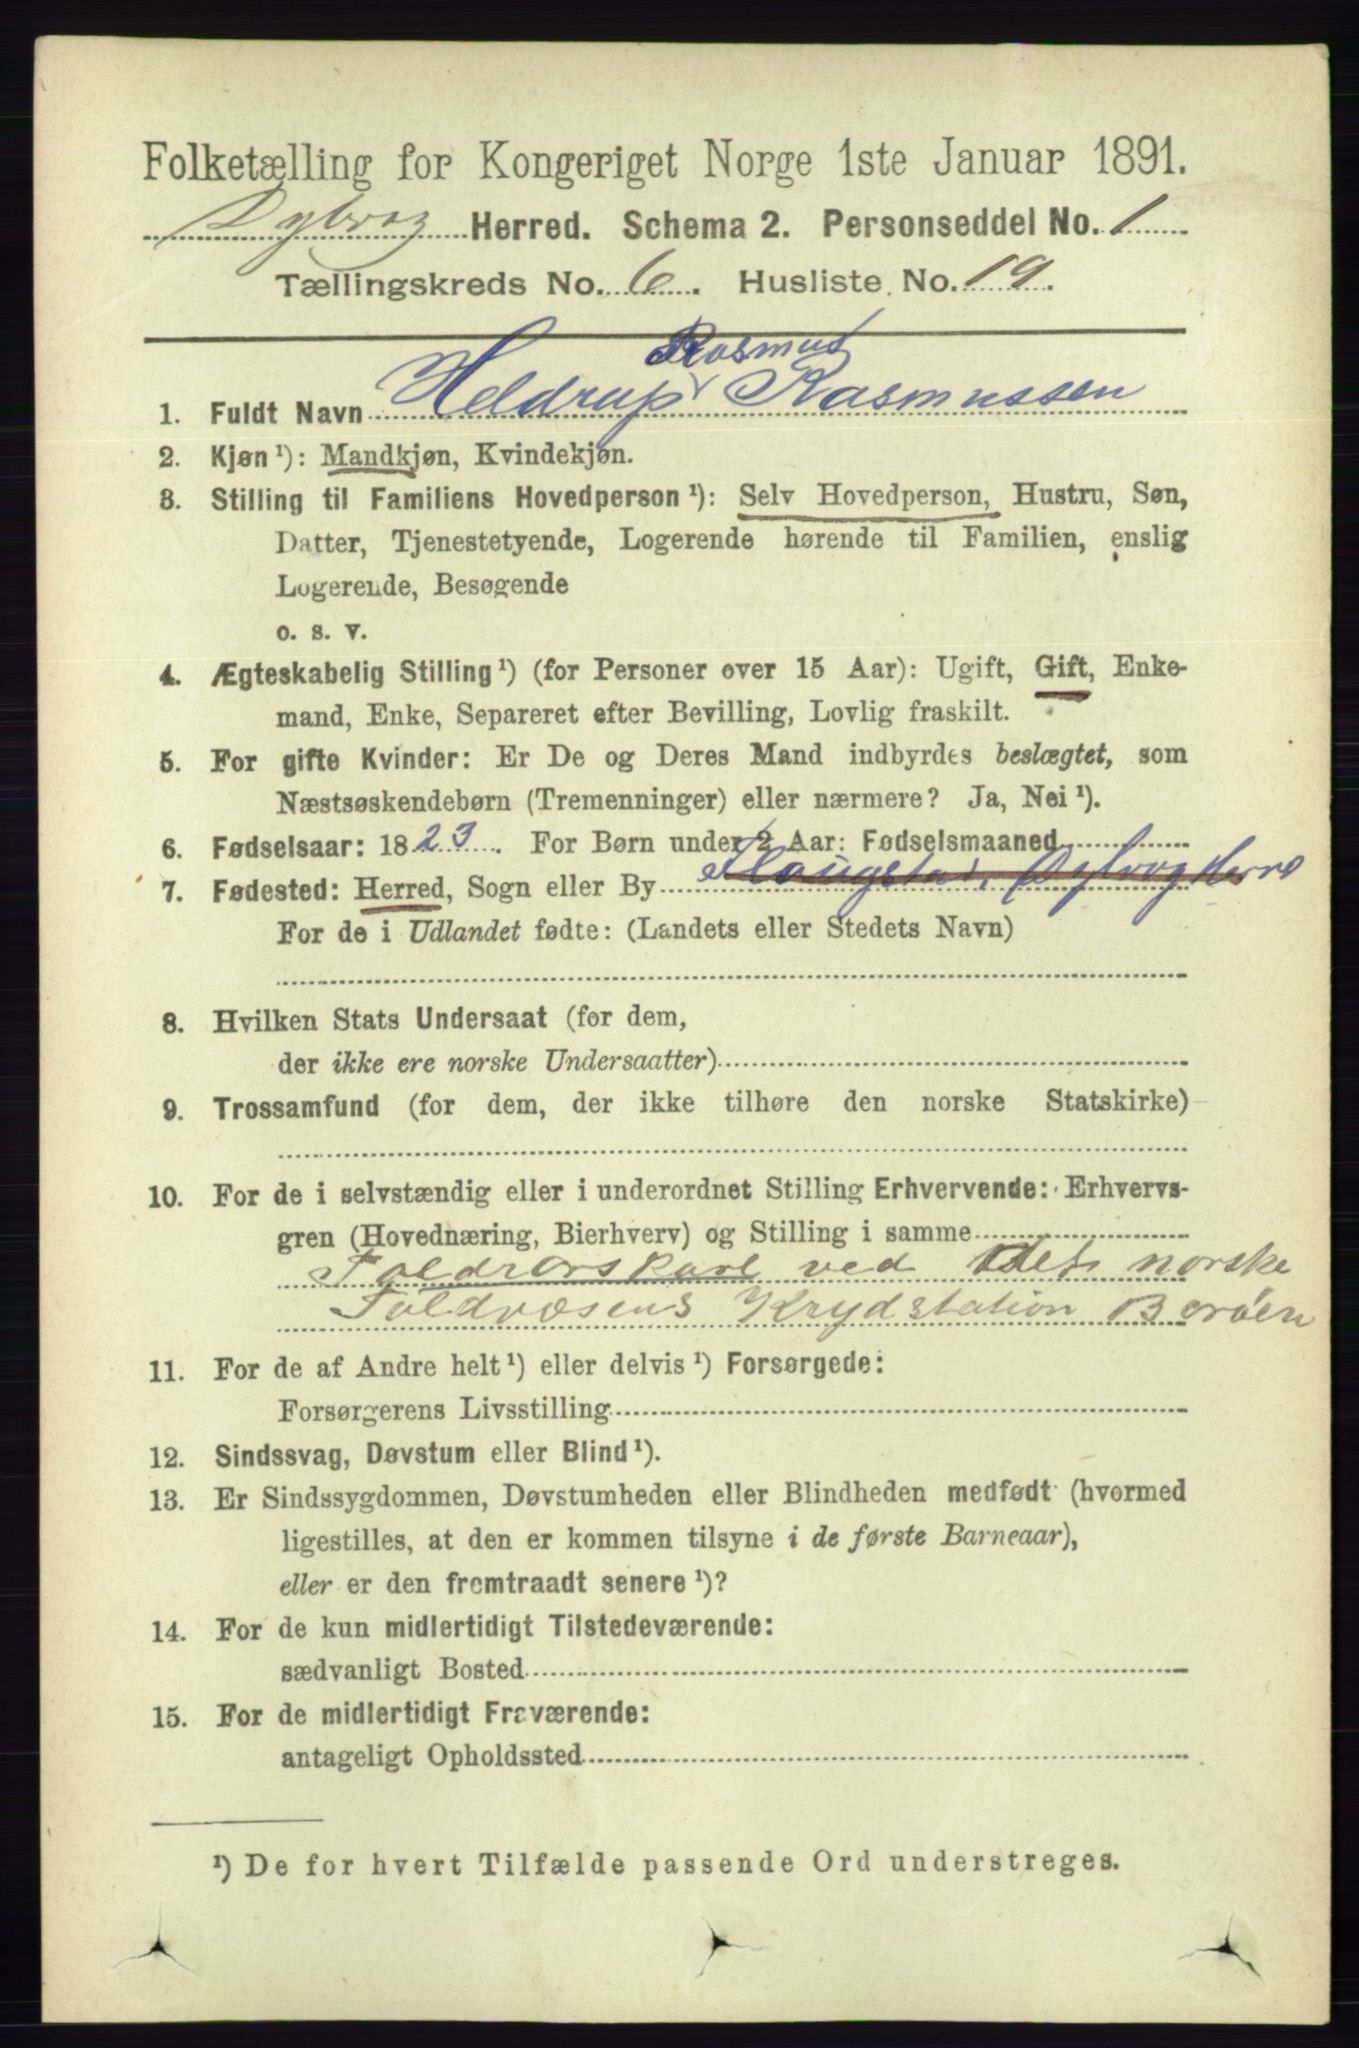 Folketælling for Kongeriget Norge 1ste Januar 1891.
Dybvog Herred. Schema 2. Personseddel No. 1
Tællingskreds No. 6. Husliste No. 19.
Rasmus
1. Fuldt Navn Heldrup Rasmussen
2. Kjøn¹): Mandkjøn, Kvindekjøn.
3. Stilling til Familiens Hovedperson¹): Selv Hovedperson, Hustru, Søn,
Datter, Tjenestetyende, Logerende hørende til Familien, enslig
Logerende, Besøgende
o. s. v.
4. Ægteskabelig Stilling¹) (for Personer over 15 Aar): Ugift, Gift, Enke-
mand, Enke, Separeret efter Bevilling, Lovlig fraskilt.
5. For gifte Kvinder: Er De og Deres Mand indbyrdes beslægtet, som
Næstsøskendebørn (Tremenninger) eller nærmere? Ja, Nei¹).
6. Fødselsaar: 1823. For Børn under 2 Aar: Fødselsmaaned
7. Fødested: Herred, Sogn eller By Haugstad, Dybvog Herred
For de i Udlandet fødte: (Landets eller Stedets Navn)
8. Hvilken Stats Undersaat (for dem,
der ikke ere norske Undersaatter)
9. Trossamfund (for dem, der ikke tilhøre den norske Statskirke)
10. For de i selvstændig eller i underordnet Stilling Erhvervende: Erhvervs-
gren (Hovednæring, Bierhverv) og Stilling i samme
Toldrorskarl ved det norske
Toldvæsens Krydstation Borøen
11. For de af Andre helt¹) eller delvis¹) Forsørgede:
Forsørgerens Livsstilling
12. Sindssvag, Døvstum eller Blind¹).
13. Er Sindssygdommen, Døvstumheden eller Blindheden medfødt (hvormed
ligestilles, at den er kommen tilsyne i de første Barneaar),
eller er den fremtraadt senere¹)?
14. For de kun midlertidigt Tilstedeværende:
sædvanligt Bosted
15. For de midlertidigt Fraværende:
antageligt Opholdssted
¹) De for hvert Tilfælde passende Ord understreges.